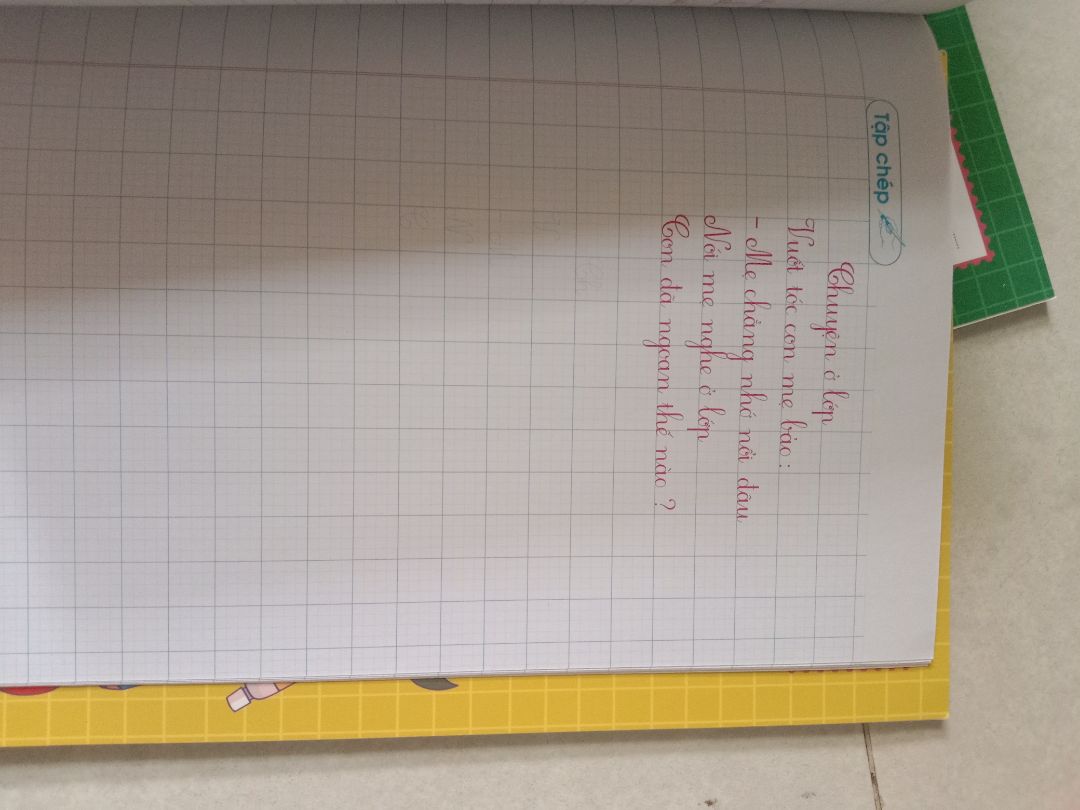 Tập chép
Chuyện ở lớp
Vuốt tóc con mẹ bảo:
- Mẹ chẳng nhớ nổi đâu
Nói mẹ nghe ở lớp
Con đã ngoan thế nào?